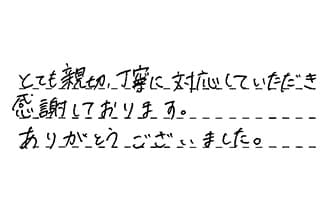 とても親切、丁寧に対応していただき
感謝しております。
ありがとうございました。